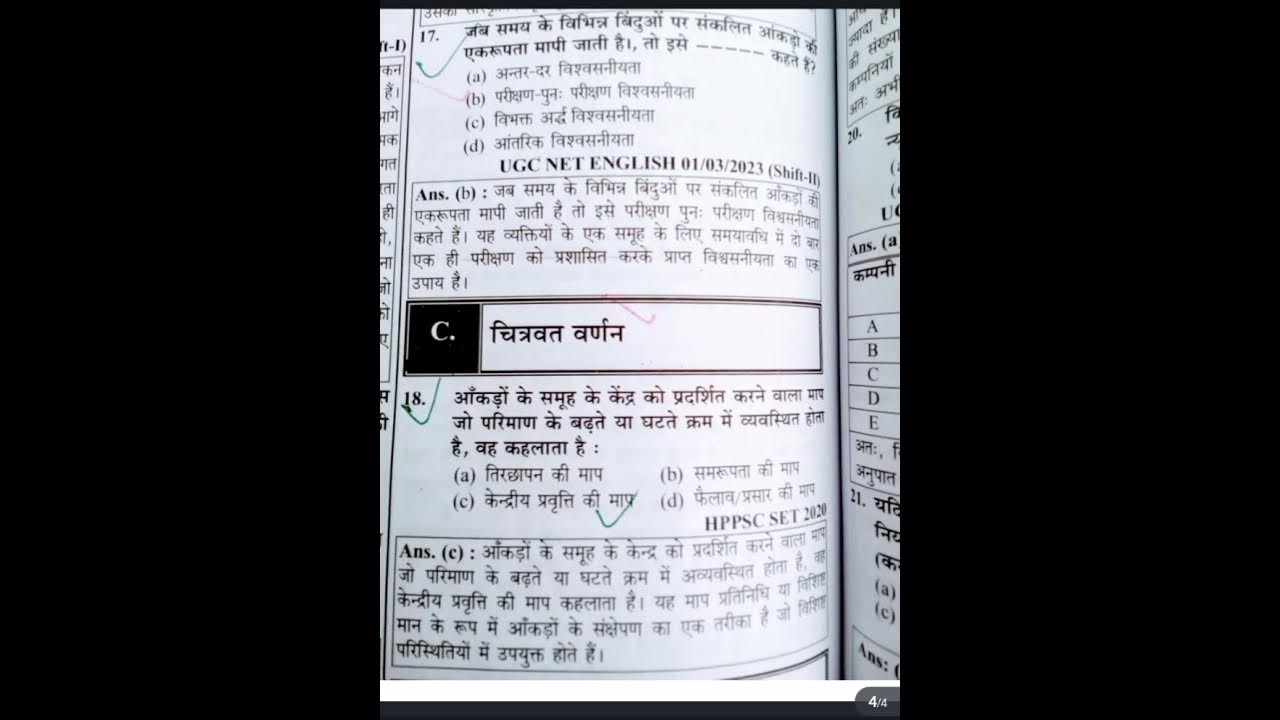 उसकी
17. जब समय के विभिन्न बिंदुओं पर संकलित आंकड़ो की
एकरूपता मापी जाती है।, तो इसे ––––– कहते हैं?
(a) अन्तर-दर विश्वसनीयता
(b) परीक्षण-पुनः परीक्षण विश्वसनीयता
(c) विभक्त अर्द्ध विश्वसनीयता
(d) आंतरिक विश्वसनीयता
UGC NET ENGLISH 01/03/2023 (Shift-II)
Ans. (b) : जब समय के विभिन्न बिंदुओं पर संकलित आँकड़ों की
एकरूपता मापी जाती है तो इसे परीक्षण पुनः परीक्षण विश्वसनीयता
कहते हैं। यह व्यक्तियों के एक समूह के लिए समयावधि में दो बार
एक ही परीक्षण को प्रशासित करके प्राप्त विश्वसनीयता का एक
उपाय है।
C. चित्रवत वर्णन
18. आँकड़ों के समूह के केंद्र को प्रदर्शित करने वाला माप
जो परिमाण के बढ़ते या घटते क्रम में व्यवस्थित होता
है, वह कहलाता है :
(a) तिरछापन की माप (b) समरूपता की माप
(c) केन्द्रीय प्रवृत्ति की माप (d) फैलाव/प्रसार की माप
HPPSC SET 2020
Ans. (c) : आँकड़ों के समूह के केन्द्र को प्रदर्शित करने वाला माप
जो परिमाण के बढ़ते या घटते क्रम में अव्यवस्थित होता है, वह
केन्द्रीय प्रवृत्ति की माप कहलाता है। यह माप प्रतिनिधि या विशिष्ट
मान के रूप में आँकड़ों के संक्षेपण का एक तरीका है जो विशिष्ट
परिस्थितियों में उपयुक्त होते हैं।
ज्यादा है।
की संख्या
कम्पनियों
अतः अभी
20.
Ans. (a
कम्पनी
A
B
C
D
E
अतः,
अनुपात
21. यदि
(a)
(c)
Ans: (
4/4